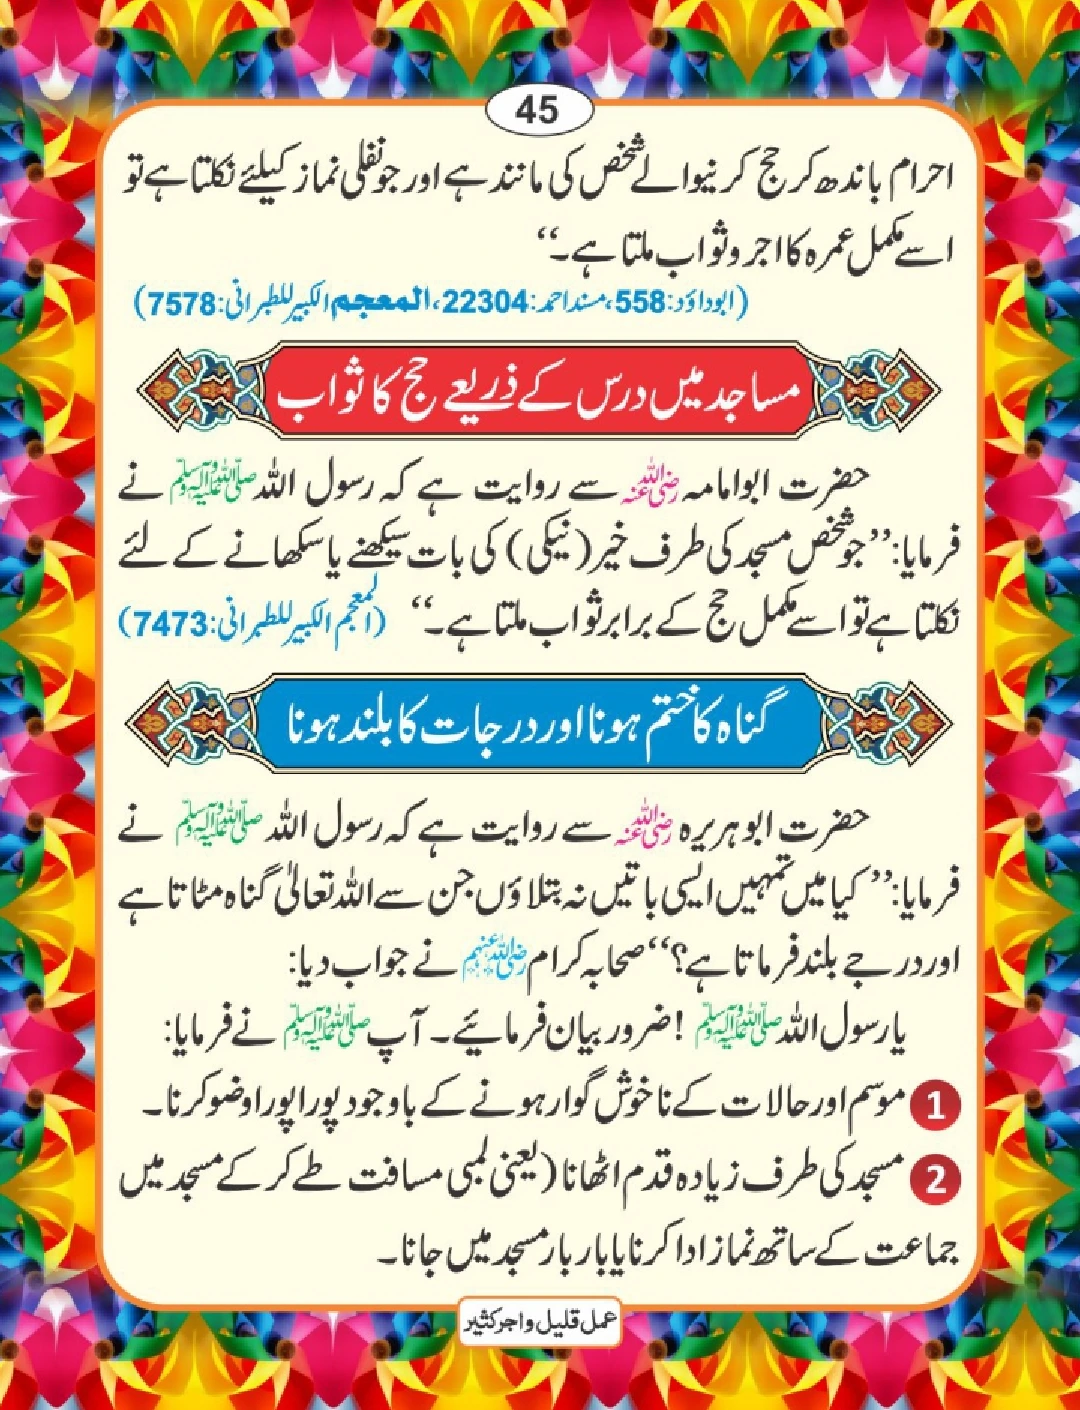 45
احرام باندھ کر حج کرنیوالے شخص کی مانند ہے اور جو نفلی نماز کیلئے نکلتا ہے تو
اسے مکمل عمرہ کا اجر و ثواب ملتا ہے۔‘‘
(ابوداؤد:558، مسند احمد:22304، المعجم الکبیر للطبرانی:7578)
مساجد میں درس کے ذریعے حج کا ثواب
حضرت ابوامامہ رضی اللہ عنہ سے روایت ہے کہ رسول اللہ صلی اللہ علیہ وآلہ وسلم نے
فرمایا:’’جو شخص مسجد کی طرف خیر (نیکی) کی بات سیکھنے یا سکھانے کے لئے
نکلتا ہے تو اسے مکمل حج کے برابر ثواب ملتا ہے۔‘‘ (المعجم الکبیر للطبرانی:7473)
گناہ کا ختم ہونا اور درجات کا بلند ہونا
حضرت ابو ہریرہ رضی اللہ عنہ سے روایت ہے کہ رسول اللہ صلی اللہ علیہ وآلہ وسلم نے
فرمایا:’’کیا میں تمہیں ایسی باتیں نہ بتلاؤں جن سے اللہ تعالیٰ گناہ مٹاتا ہے
اور درجے بلند فرماتا ہے؟‘‘ صحابہ کرام رضی اللہ عنہم نے جواب دیا:
یا رسول اللہ صلی اللہ علیہ وآلہ وسلم! ضرور بیان فرمائیے۔ آپ صلی اللہ علیہ وآلہ وسلم نے فرمایا:
1 موسم اور حالات کے ناخوش گوار ہونے کے باوجود پورا پورا وضو کرنا۔
2 مسجد کی طرف زیادہ قدم اٹھانا (یعنی لمبی مسافت طے کر کے مسجد میں
جماعت کے ساتھ نماز ادا کرنا یا بار بار مسجد میں جانا۔
عمل قلیل و اجر کثیر